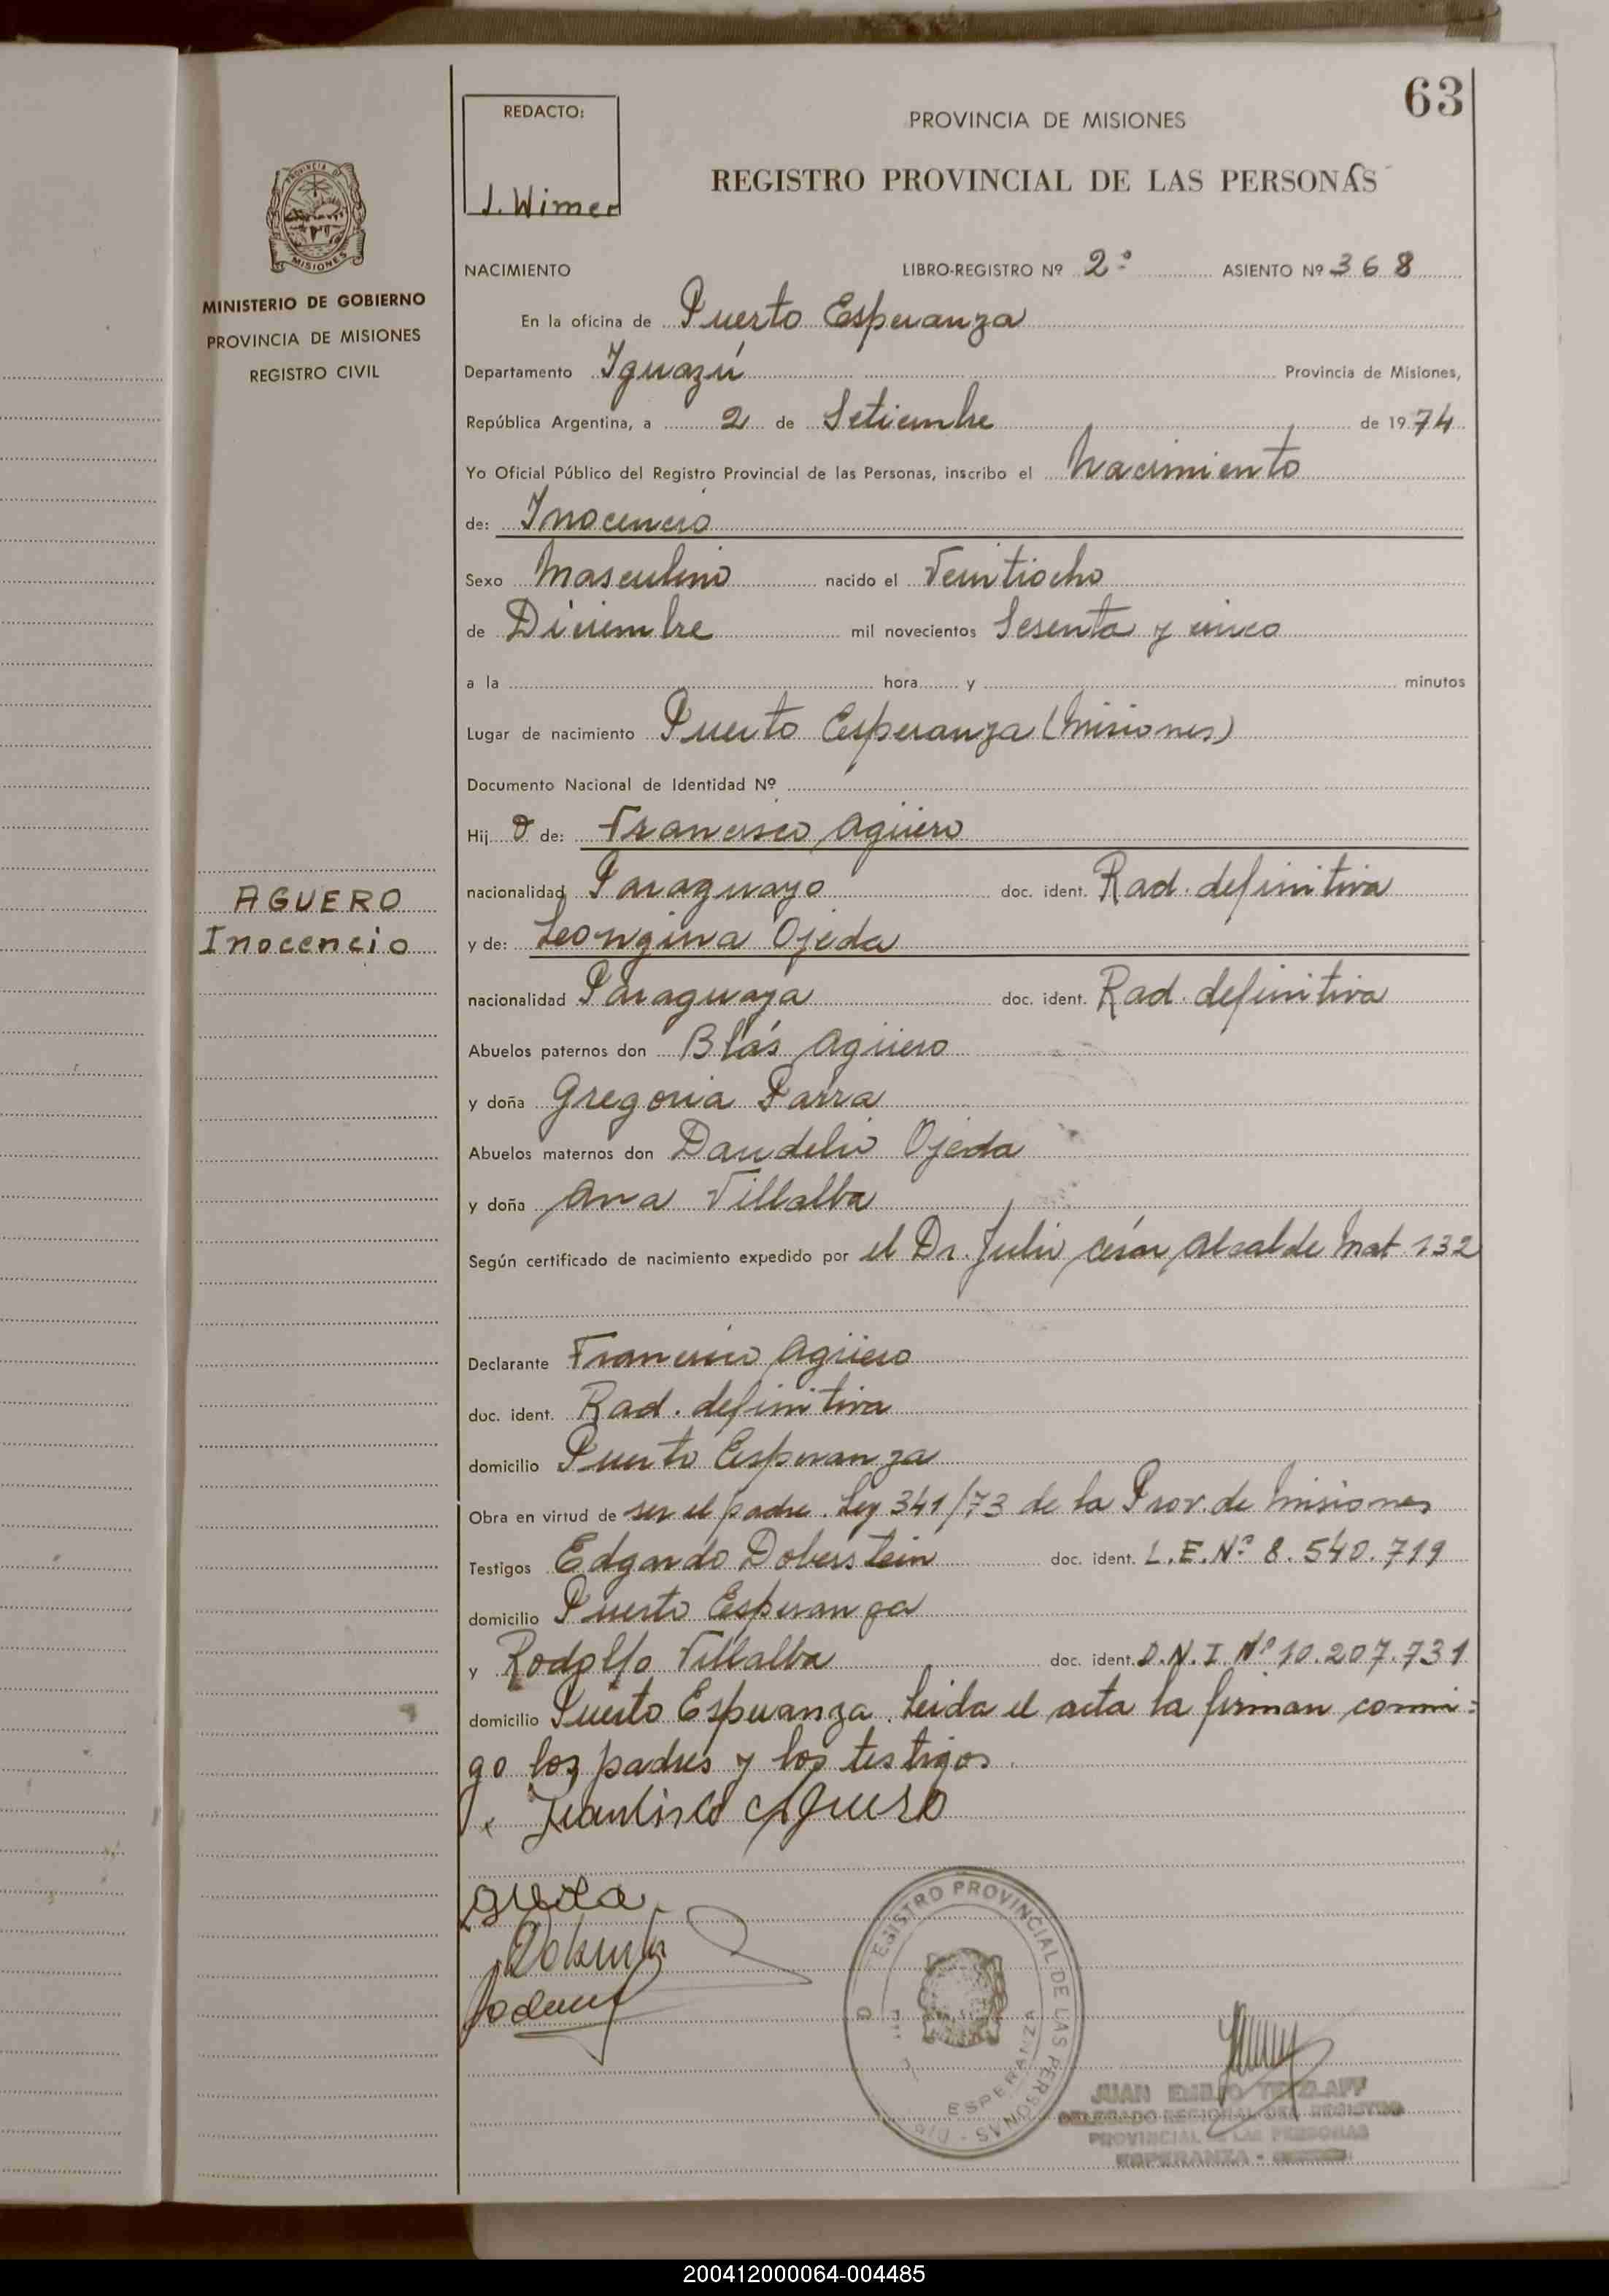 63
REDACTO:
J. Wimer
PROVINCIA DE MISIONES
REGISTRO PROVINCIAL DE LAS PERSONAS
PROVINCIA DE
MISIONES
MINISTERIO DE GOBIERNO
PROVINCIA DE MISIONES
REGISTRO CIVIL
NACIMIENTO LIBRO-REGISTRO Nº 2º ASIENTO Nº 368
En la oficina de Puerto Esperanza
Departamento Iguazú Provincia de Misiones,
República Argentina, a 2 de Setiembre de 1974
Yo Oficial Público del Registro Provincial de las Personas, inscribo el Nacimiento
de: Inocencio
Sexo Masculino nacido el Veintiocho
de Diciembre mil novecientos Sesenta y cinco
a la hora y minutos
Lugar de nacimiento Puerto Esperanza (Misiones)
Documento Nacional de Identidad Nº
Hijo de: Francisco Agüero
AGUERO
Inocencio
nacionalidad Paraguayo doc. ident. Rad. definitiva
y de: Leongina Ojeda
nacionalidad Paraguaya doc. ident. Rad. definitiva
Abuelos paternos don Blás Agüero
y doña Gregoria Parra
Abuelos maternos don Daudelio Ojeda
y doña Ana Villalba
Según certificado de nacimiento expedido por el Dr. Julio César Alcalde Mat 132
Declarante Francisco Agüero
doc. ident. Rad. definitiva
domicilio Puerto Esperanza
Obra en virtud de ser el padre. Ley 341/73 de la Prov. de Misiones
Testigos Edgardo Doberstein doc. ident. L.E.Nº 8.540.719
domicilio Puerto Esperanza
y Rodolfo Villalba doc. ident. D.N.I. Nº 10.207.731
domicilio Puerto Esperanza. Leida el acta la firman conmi=
go los padres y los testigos.
x Francisco Aguero
REGISTRO PROVINCIAL DE LAS PERSONAS
ESPERANZA
JUAN EMILIO TETZLAFF
DELEGADO REGIONAL DEL REGISTRO
PROVINCIAL DE LAS PERSONAS
ESPERANZA -
200412000064-004485